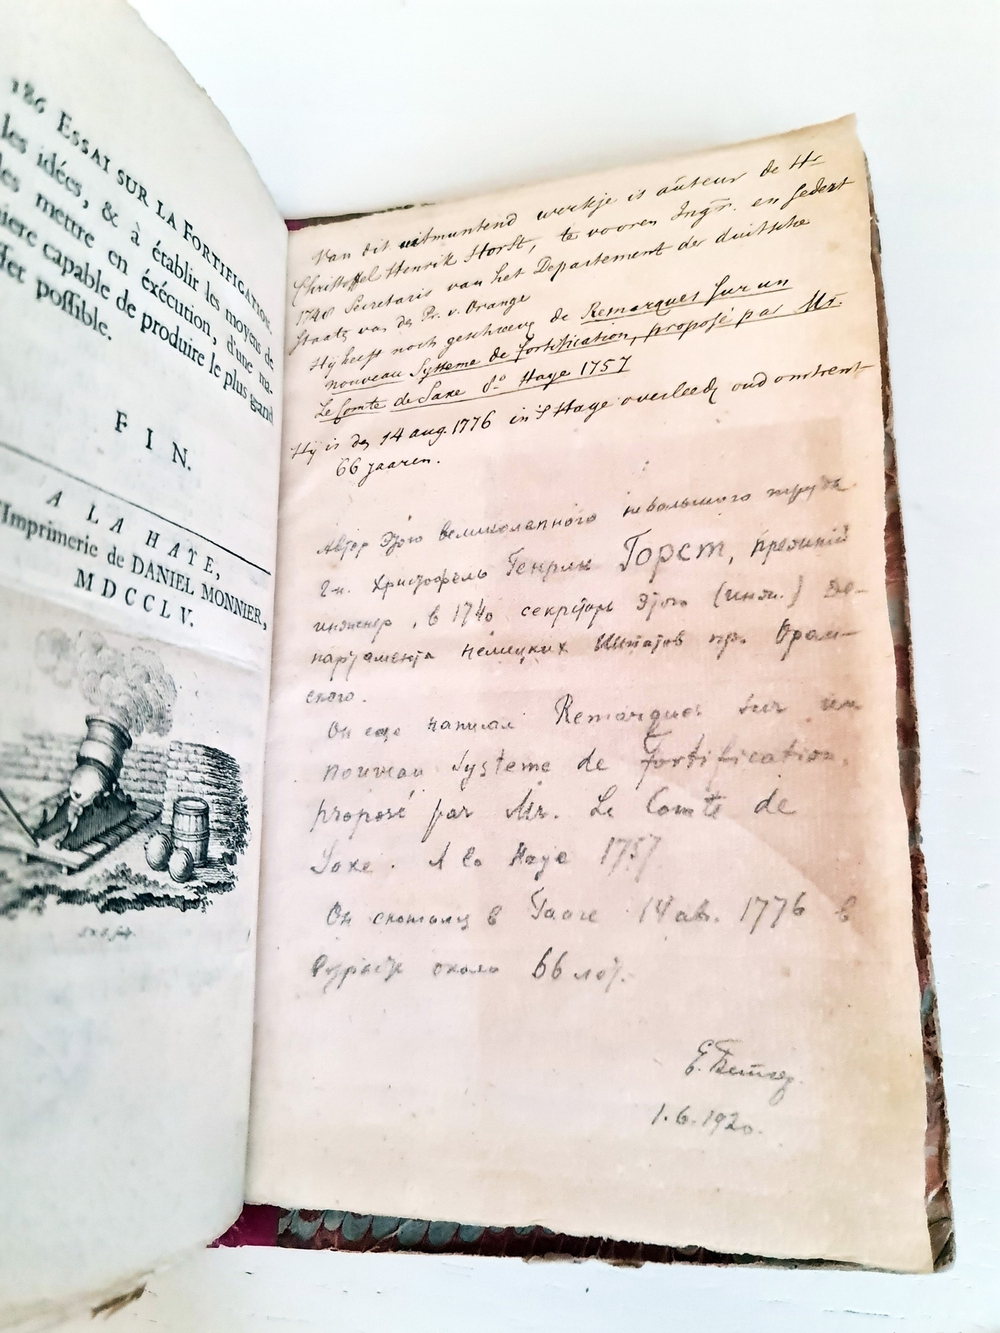 186 ESSAI SUR LA FORTIFICATION.
les idées, & à établir les moyens de
les mettre en éxécution, d'une ma-
niere capable de produire le plus grand
effet possible.
FIN.
A LA HAYE,
l'Imprimerie de DANIEL MONNIER,
MDCCLV.
Van dit uitmuntend werkje is auteur de Hr
Christoffel Henrik Horst, te vooren Ingr. en sedert
1740 Secretaris van het Departement der duitsche
Staats van den Pr. v. Orange
Hij heeft noch geschreven de Remarques sur un
nouveau Systeme de fortification, proposé par Mr.
Le Comte de Saxe Haye 1757
Hij is den 14 aug. 1776 in 'S Hage overleeden oud omtrent
66 jaaren.
Автор этого великолепного небольшого труда
г-н. Христофель Генрик Горст, прежний
инженер, в 1740 секретарь этого (инж.) Де-
партамента немецких Штатов пр. Оран-
ского.
Он еще написал Remarques sur un
nouveau Systeme de fortification,
proposé par Mr. Le Comte de
Saxe. A la Haye 1757
Он скончался в Гааге 14 ав. 1776 в
возрасте около 66 лет.
1.6.1920.